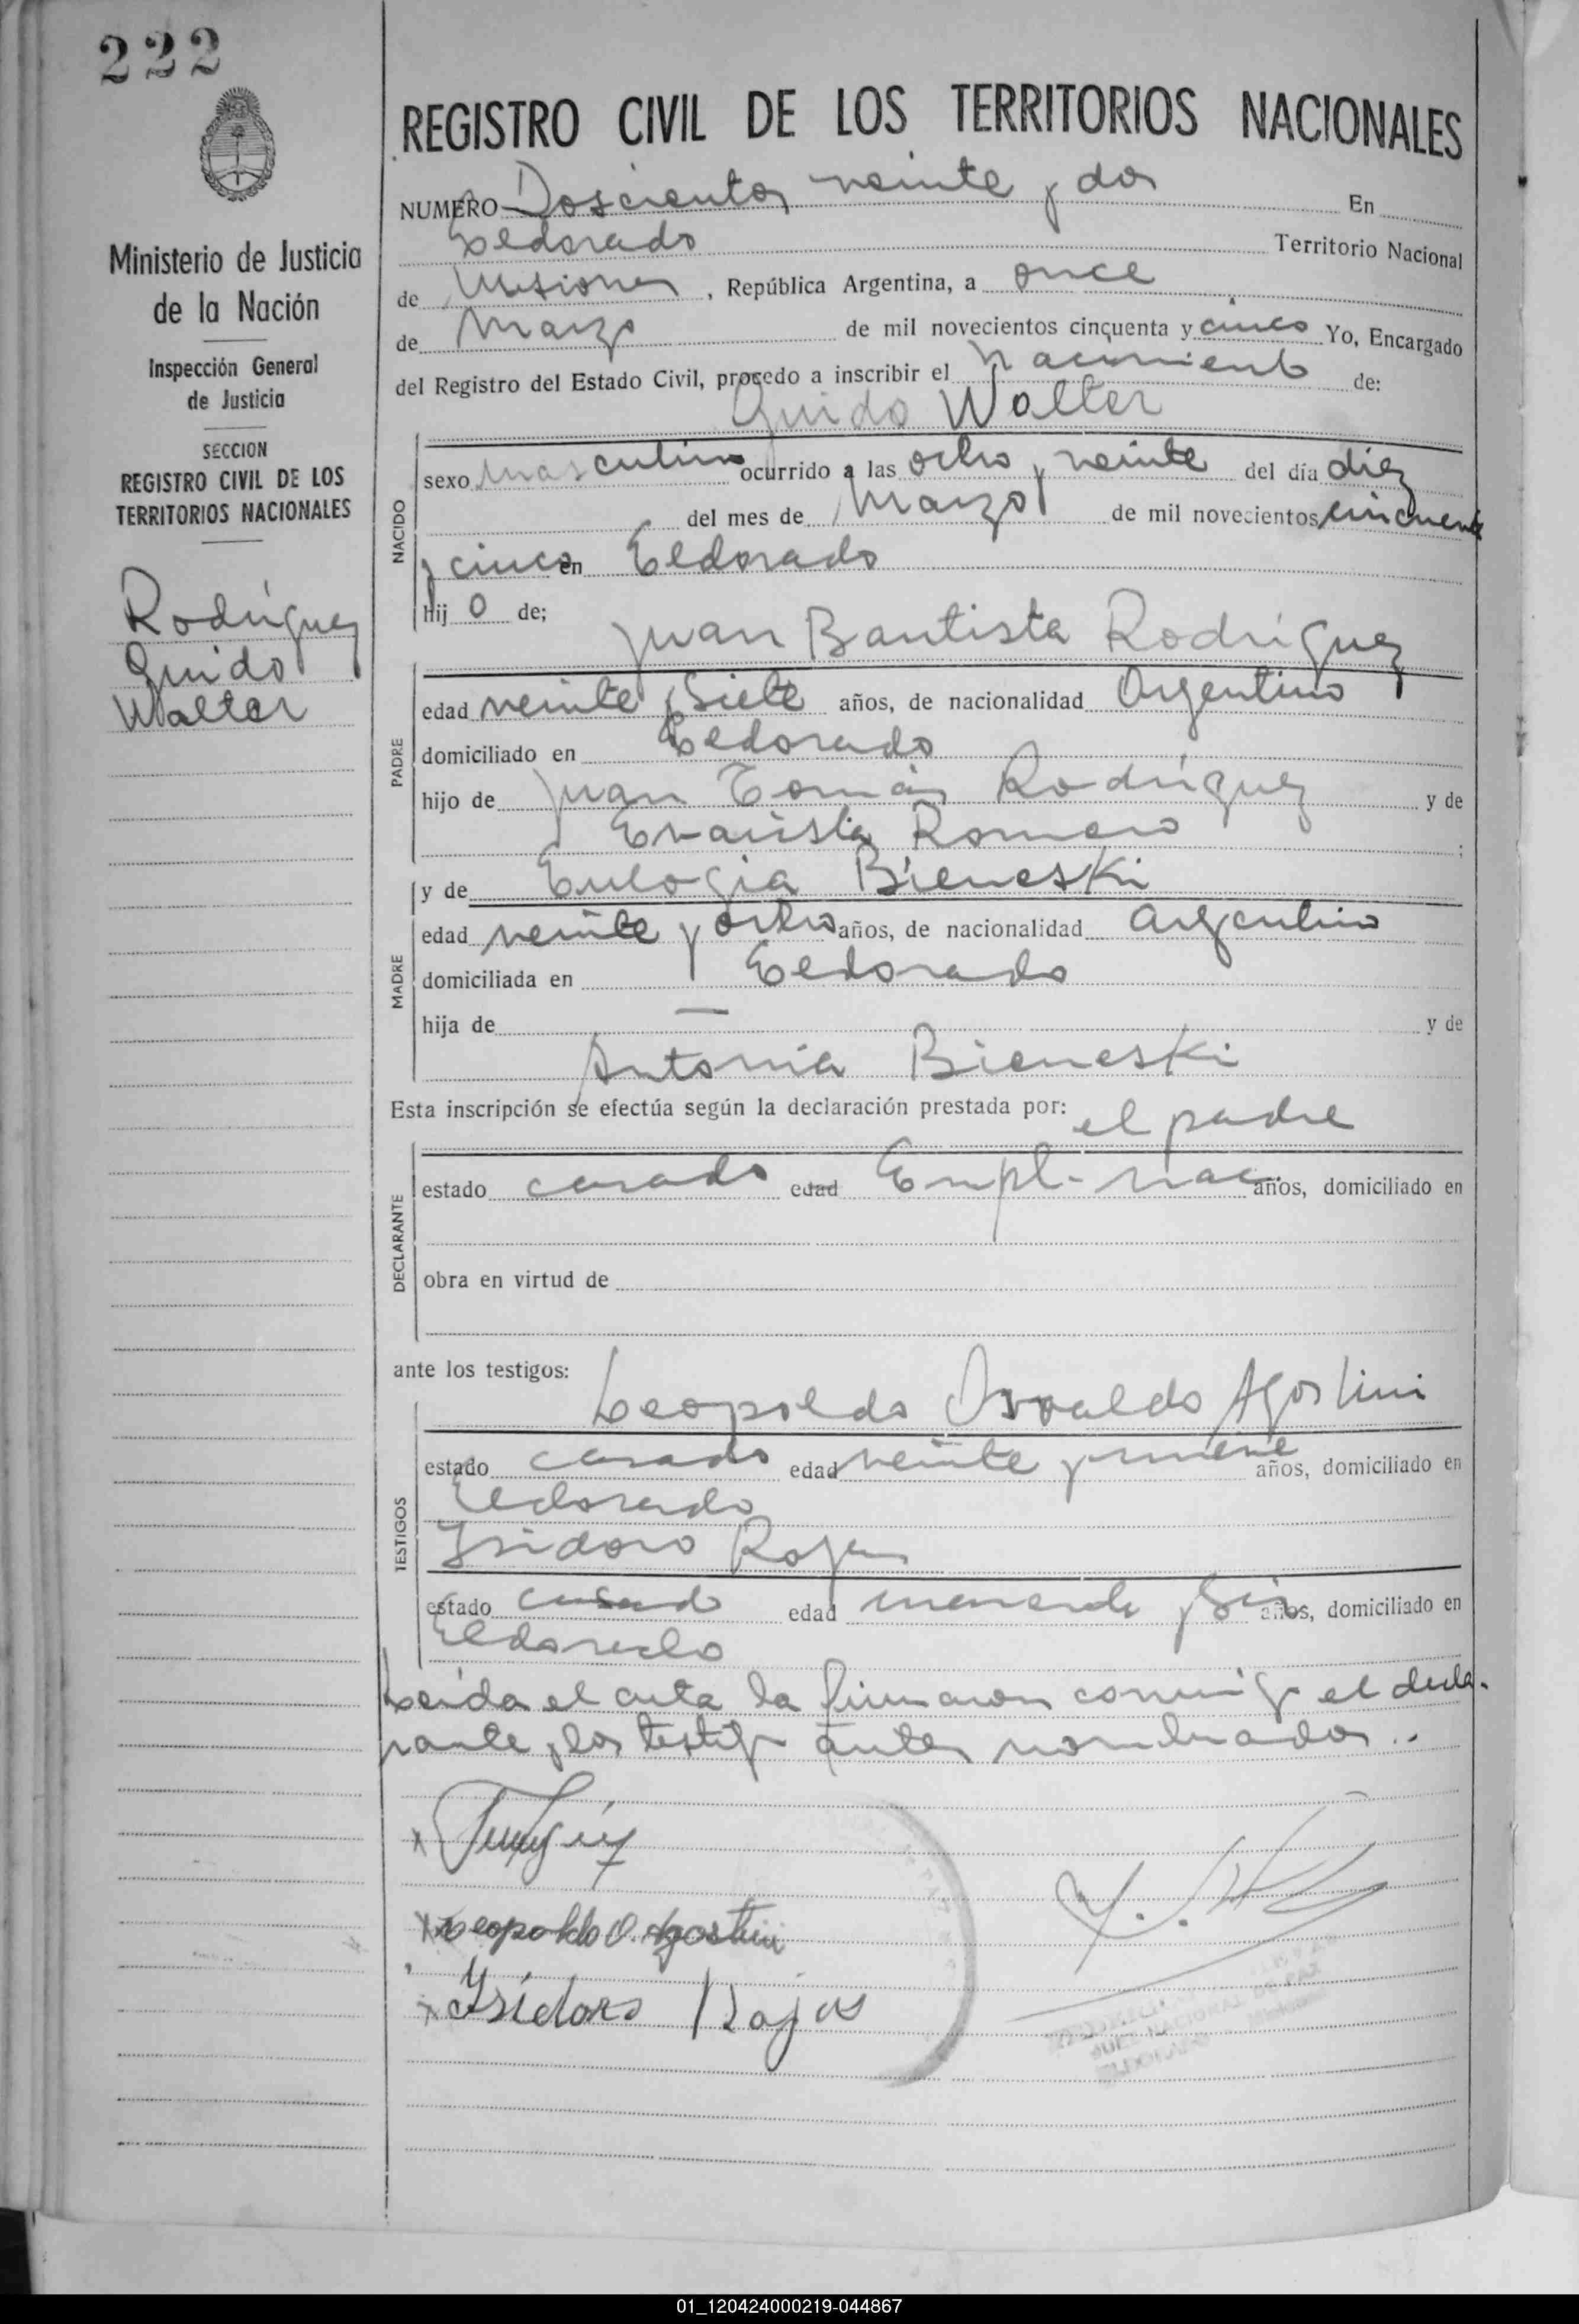 222
Ministerio de Justicia
de la Nación
Inspección General
de Justicia
SECCION
REGISTRO CIVIL DE LOS
TERRITORIOS NACIONALES
Rodríguez
Guido
Walter
REGISTRO CIVIL DE LOS TERRITORIOS NACIONALES
NUMERO Doscientos veinte y dos En
Eldorado Territorio Nacional
de Misiones, República Argentina, a once
de Marzo de mil novecientos cincuenta y cinco Yo, Encargado
del Registro del Estado Civil, procedo a inscribir el nacimiento de:
Guido Walter
NACIDO
sexo masculino ocurrido a las ocho y veinte del día diez
del mes de Marzo de mil novecientos cincuenta
y cinco en Eldorado
hijo de;
Juan Bautista Rodríguez
PADRE
edad veinte y siete años, de nacionalidad Argentino
domiciliado en Eldorado
hijo de Juan Tomás Rodríguez y de
Evarista Romero ;
y de Eulogia Bieneski
MADRE
edad veinte y ocho años, de nacionalidad argentino
domiciliada en Eldorado
hija de — y de
Antonia Bieneski
Esta inscripción se efectúa según la declaración prestada por: el padre
DECLARANTE
estado casado edad Empl. nac. años, domiciliado en
obra en virtud de
ante los testigos:
Leopoldo Osvaldo Agostini
TESTIGOS
estado casado edad veinte y nueve años, domiciliado en
Eldorado
Isidoro Rojas
estado casado edad y seis años, domiciliado en
Eldorado
Leída el acta la firmaron conmigo el decla-
rante y los testigos antes nombrados..
x
x Leopoldo O. Agostini
x Isidoro Rojas
JUEZ NACIONAL DE PAZ
ELDORADO Misiones
01_120424000219-044867